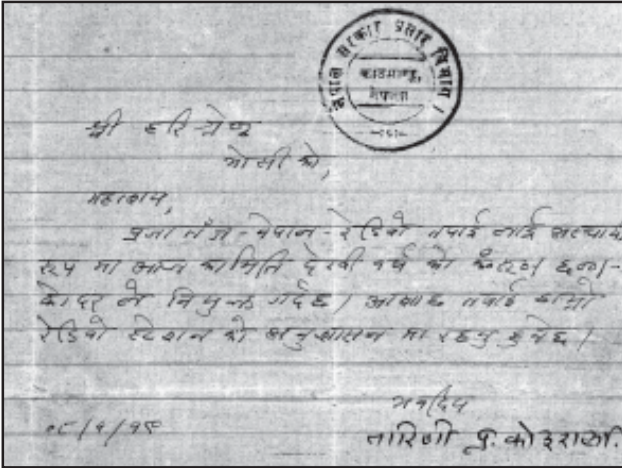 नेपाल सरकार प्रसार विभाग ।
काठमाण्डू,
नेपाल
श्री हरि
को,
महाशय,
प्रजातंत्र-नेपाल-रेडियो तपाई लाई
रुप मा आज का मिति देखी वर्ष को ६००/-
के दर ले नियुक्त गर्दछ । आशा छ तपाई हाम्रो
रेडियो स्टेशन को अनुशासन मा रहनु हुनेछ ।
भवदिय
तारिणी प्र. कोइराला.